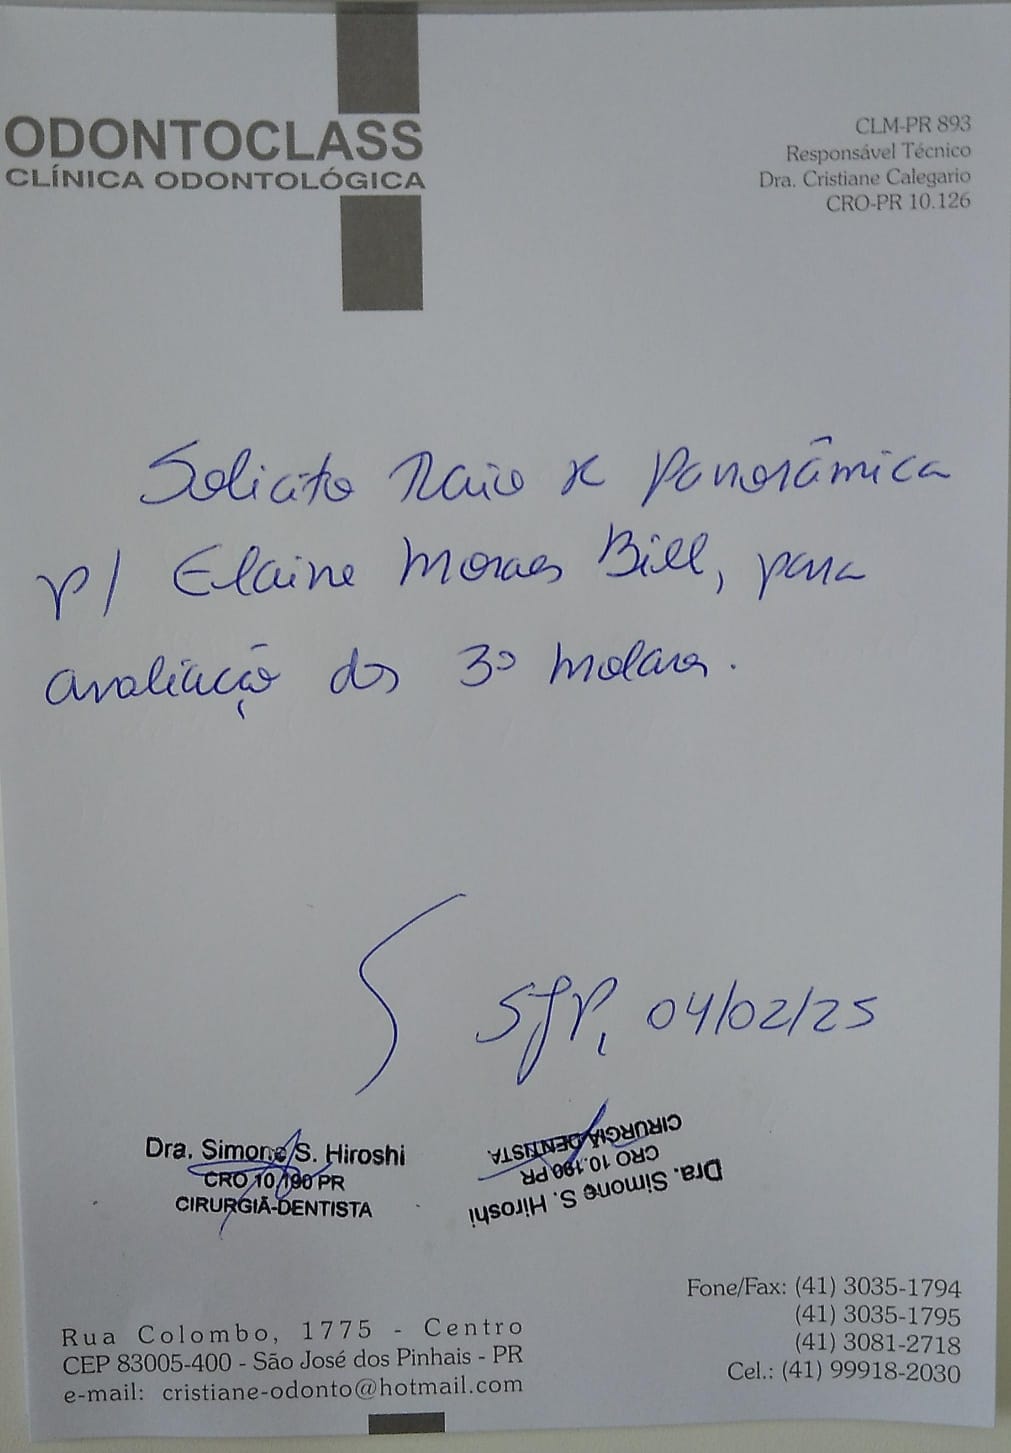 ODONTOCLASS
CLÍNICA ODONTOLÓGICA
CLM-PR 893
Responsável Técnico
Dra. Cristiane Calegario
CRO-PR 10.126
Solicito Raio X panorâmica
p/ Elaine Moraes Bill, para
avaliação dos 3º molares.
SJP, 04/02/25
Dra. Simone S. Hiroshi
CRO 10.190 PR
CIRURGIÃ-DENTISTA
Dra. Simone S. Hiroshi
CRO 10.190 PR
CIRURGIÃ-DENTISTA
Rua Colombo, 1775 - Centro
CEP 83005-400 - São José dos Pinhais - PR
e-mail: cristiane-odonto@hotmail.com
Fone/Fax: (41) 3035-1794
(41) 3035-1795
(41) 3081-2718
Cel.: (41) 99918-2030